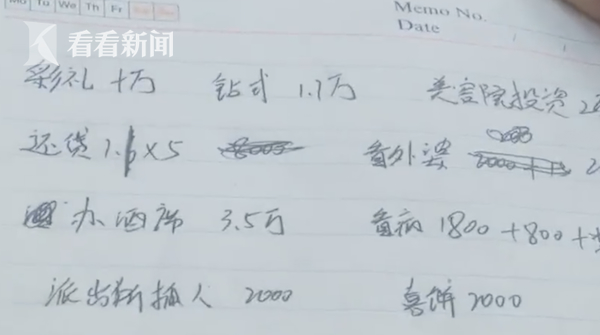 Mo Tu We Th Fr Sa Su
Memo No.
Date
看看新闻
彩礼 十万 钻式 1.7万 美容院投资 2
还贷 1. ×5 看外婆 2
办酒席 3.5万 看病 1800+800+
派出所捞人 2000 喜饼 2000